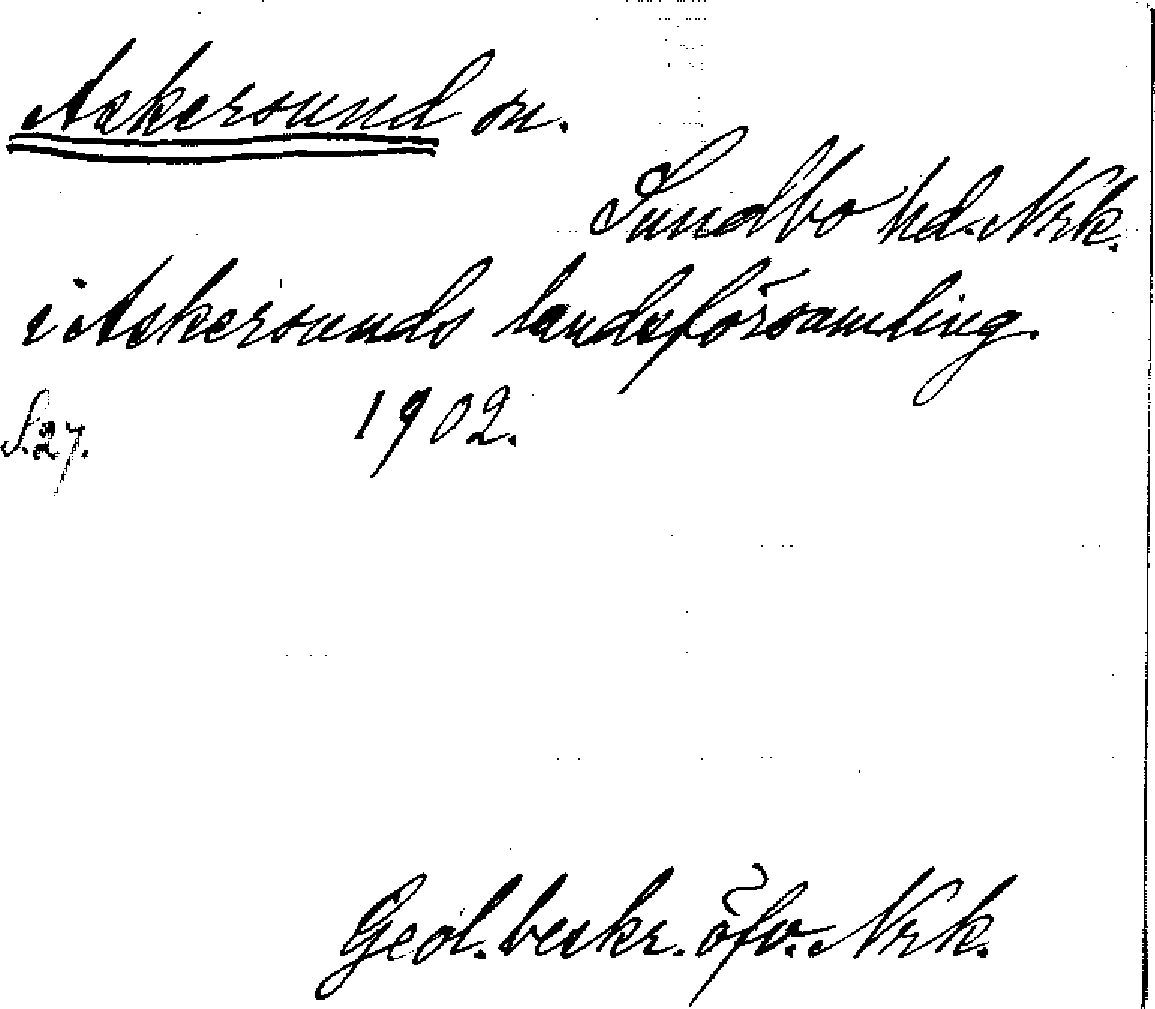 Askersund sn.
Sundbo hd. Nrk.
i Askersunds landsförsamling.
S. 27. 1902.
Geol. beskr. öfv. Nrk.